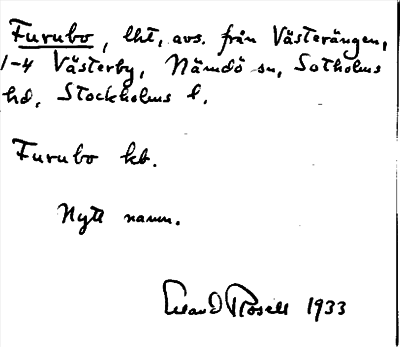 Furubo, lht, avs. från Västerängen,
1-4 Västerby, Nämdö sn, Sotholms
hd, Stockholms l.
Furubo kb.
Nytt namn.
Erland Rosell 1933